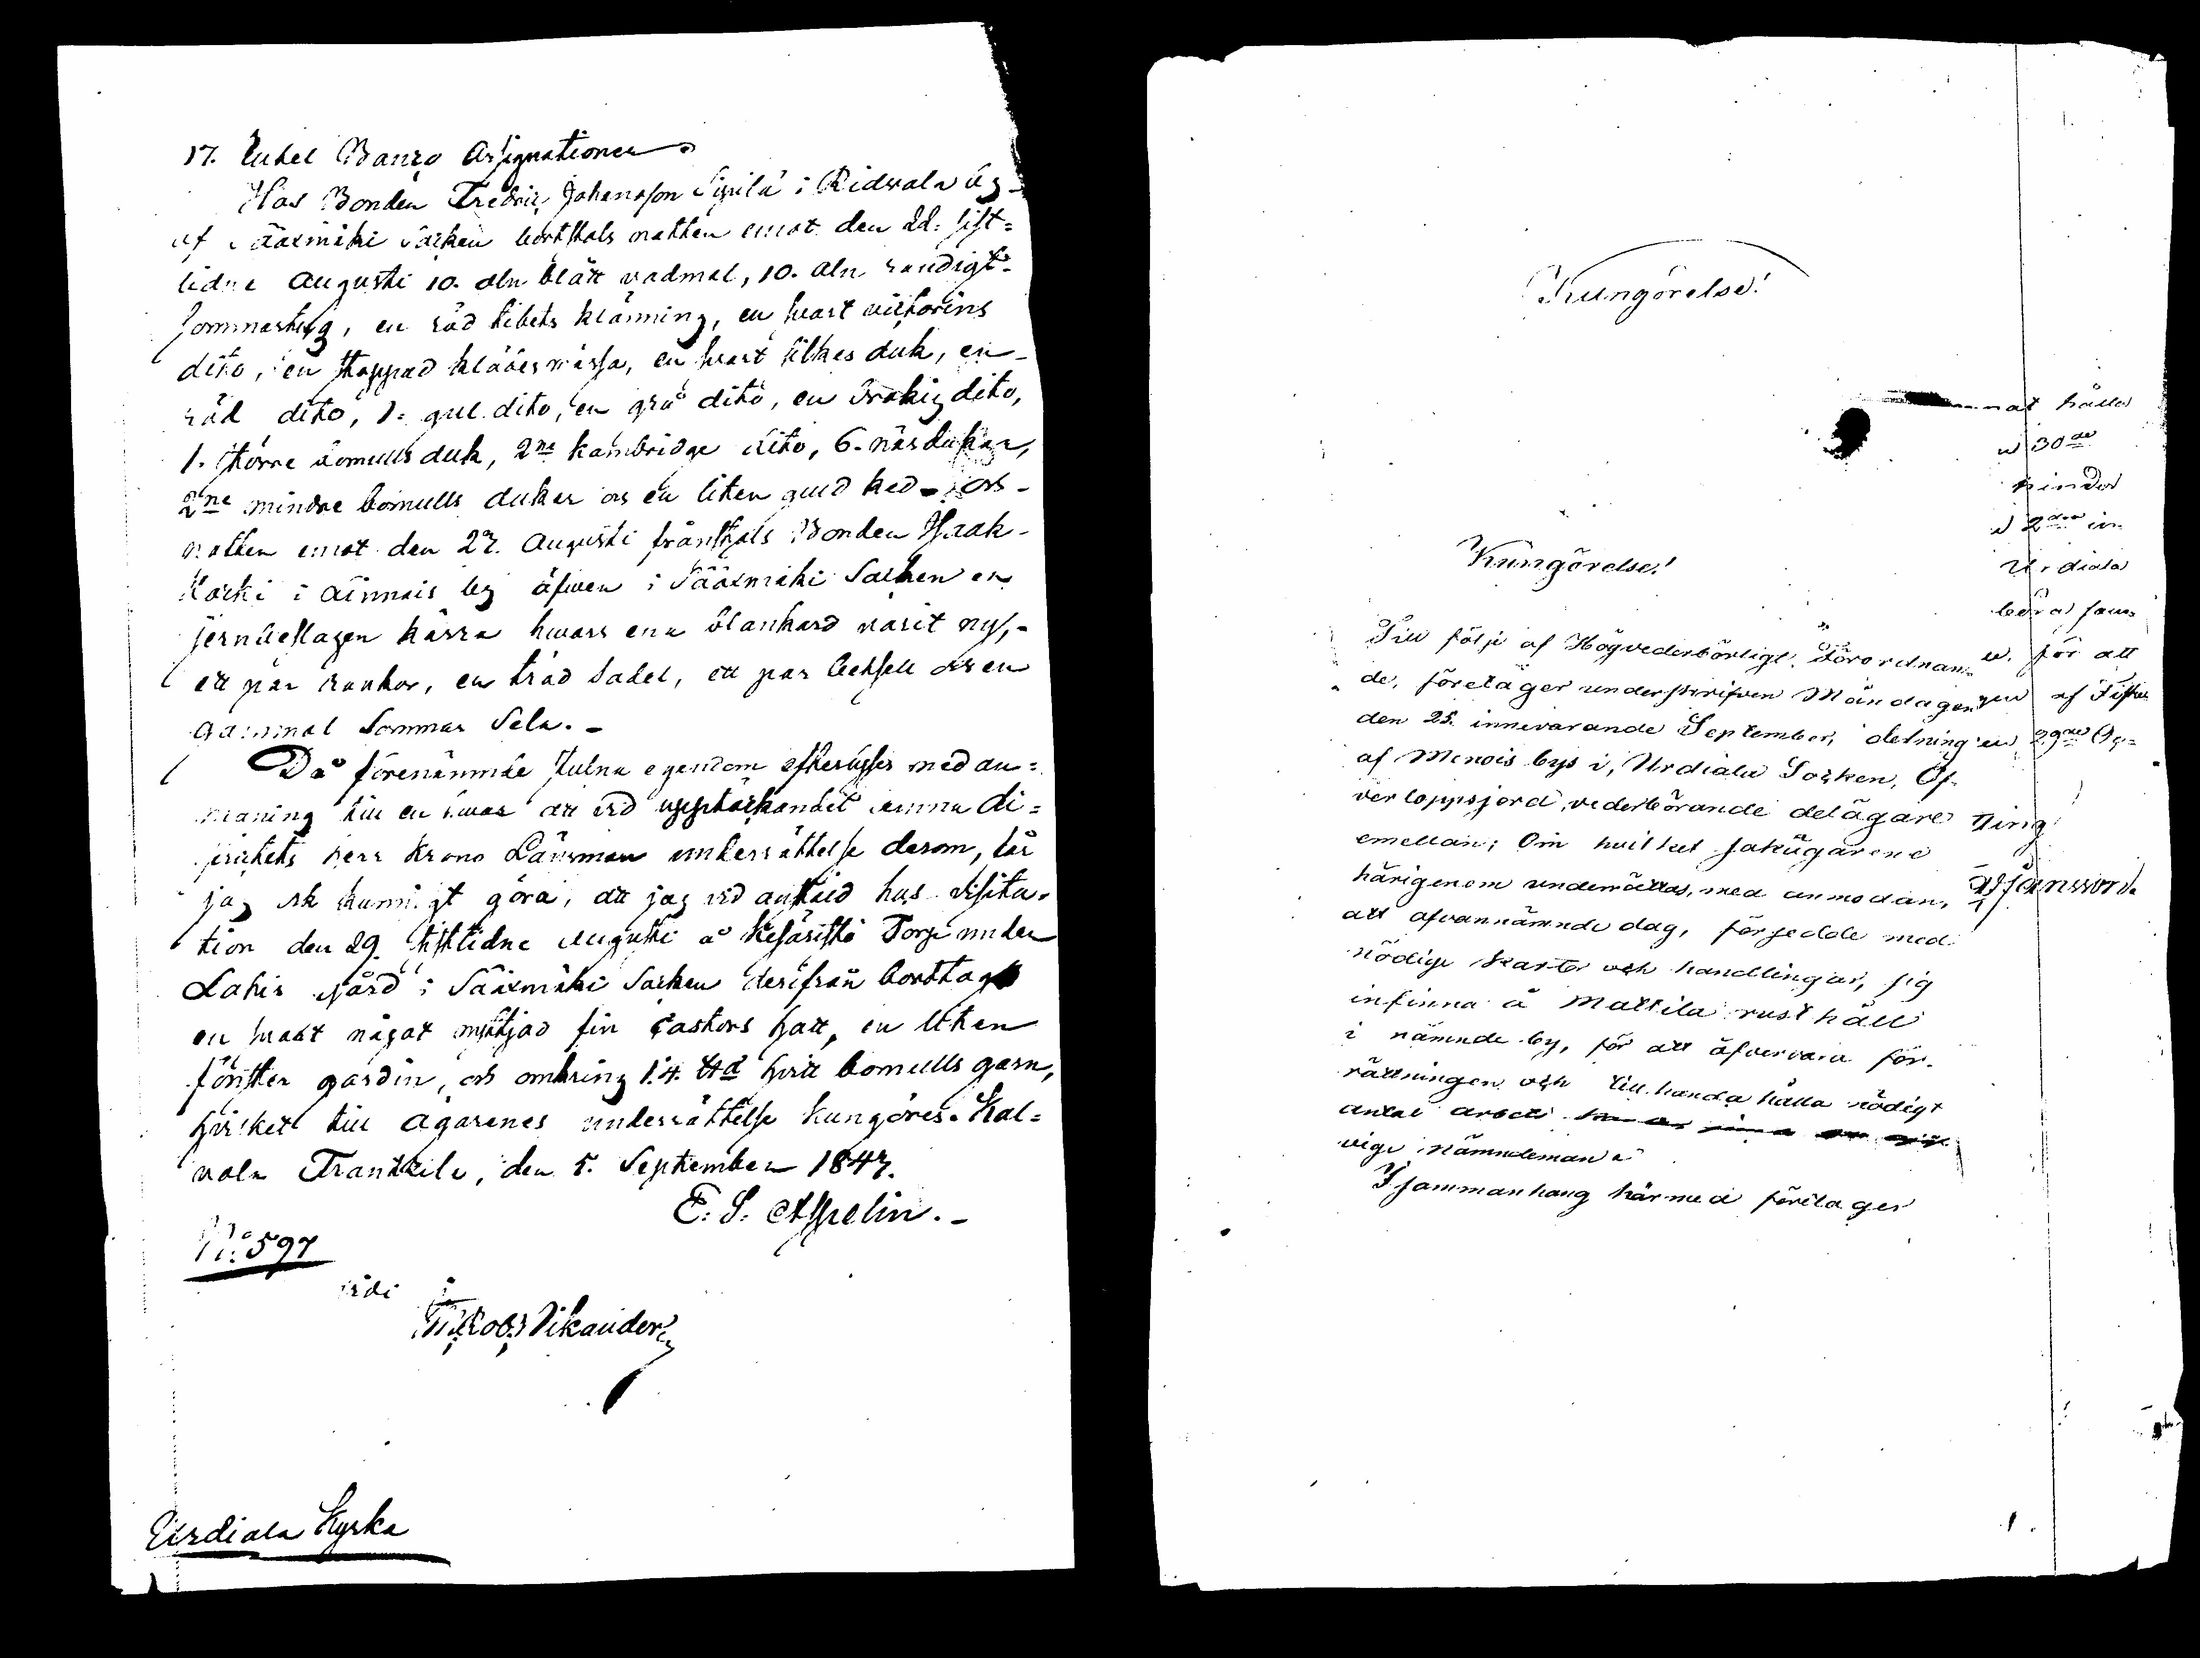 17. Enkel Banco Assignationer
Hos Bonden Fredric Johansson Sipilä i Ridvala by
af Sääxmäki Socken bortstals natten emot den 22. sist=
lidne Augusti 10. aln blått vadmal, 10. aln randigt
sommartyg, en röd tibets klänning, en svart victorins
dito, en stoppad klädesmössa, en svart silkes duk, en
röd dito, 1. gul dito, en grå dito, en brokig dito,
1. större bomulls duk, 2ne kambridge dito, 6. näsdukar,
2ne mindre bomulls dukar och en liten guld ked – och
natten emot den 27. Augusti frånstals Bonden Isaak
i by äfven i Sääxmäki Socken en
jernbeslagen kärra hvars ena blankard varit ny,
ett par rankor, en träd Sadel, ett par betsel och en
gammal Sommar Sela. –
Då förenämnde stulna egendom efterlyses med an=
maning till en hvar att vid upptäckandet lemna di=
strictets herr Krono Länsman underrättelse derom, får
jag ock kunnigt göra, att jag vid anstäld hus visita=
tion den 29. sistlidne Augusti å Torp under
Lahis gård i Sääxmäki Socken derifrån borttagit
en svart något nyttjad fin Castors hatt, en liten
fönster gardin, och omkring 1/4. ttd hvitt bomulls garn,
hvilket till ägarenes underrättelse kungöres. Kal=
vola Frantzila, den 5. September 1847.
E. S. Aspelin. –
No 597
Jakob Vikander
Urdiala Kyrka
Kungörelse!
Kungörelse!
Till följe af Högvederbörligt Förordnan=
de, företager underskrifven Måndagen
den 25. innevarande September, delning
af Menois bys i, Urdiala Socken, Öf-
verloppsjord, vederbörande delägare
emellan; Om hvilket sakägarene
härigenom underrättas, med anmodan,
att ofvannämnde dag, försedde med
nödige kartor och handlingar, sig
infinna å Mattila rusthåll
i nämnde by, för att öfvervara för-
rättningen och tillhandahålla nödigt
antal arbets
vige nämndemän
I sammanhang härmed företager
nat hålla
30de
2dra in
Urdiala
böra som
för att
af
29de
Ting